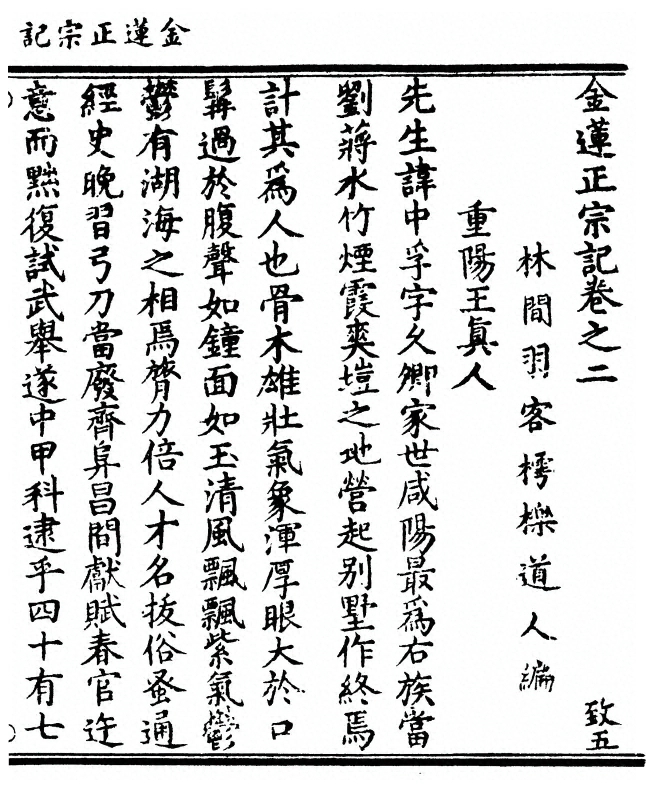 金蓮正宗記
金蓮正宗記卷之二 致五
林間羽客樗櫟道人編
重陽王真人
先生諱中孚字久卿家世咸陽最為右族當
劉蔣水竹煙霞爽塏之地營起别墅作終焉
計其為人也骨木雄壯氣象渾厚眼大於口
髯過於腹聲如鐘面如玉清風飄飄紫氣鬱
鬱有湖海之相焉膂力倍人才名拔俗蚤通
經史晚習弓刀當廢齊阜昌間獻賦春官迕
意而黜復試武舉遂中甲科逮乎四十有七